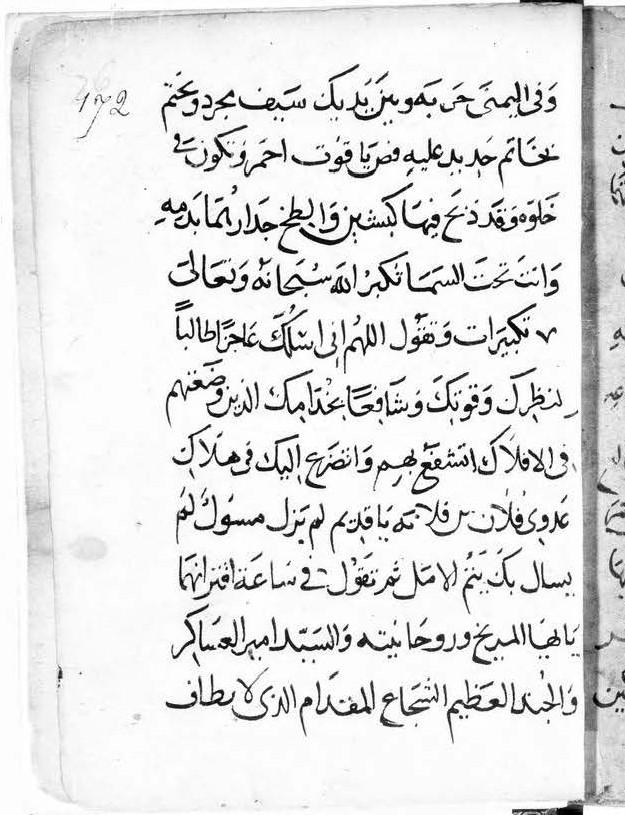 172
وفى اليمنى حربه وبين يديك سيف مجرد وتختم
بخاتم حديد عليه فص ياقوت احمر وتكون فى
خلوه وقد ذبح فيها كبشين والطخ جدارتها بدمه
وانت تحت السما تكبر الله سبحانه وتعالى
٧ تكبيرات وتقول اللهم انى اسلك عاجزا طالباً
لنظرك وقوتك وشافعًا بخدامك الذين وضعتهم
فى الافلاك اتشفع بهم واتضرع اليك فى هلاك
عدوى فلان بن فلانه يا قديم لم يزل مسوك لم
يسال بك يتم الامل ثم تقول فى ساعة اقترانهما
يايها المريخ وروحانيته والسيد امير العساكر
والجند العظيم الشجاع المقدام الذى لا يطاف